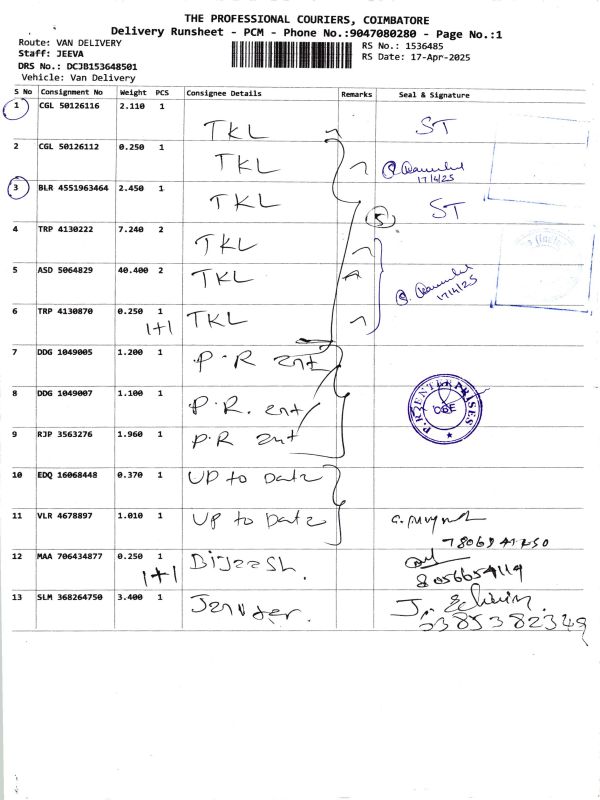 THE PROFESSIONAL COURIERS, COIMBATORE
Delivery Runsheet - PCM - Phone No.:9047080280 - Page No.:1
Route: VAN DELIVERY
RS No.: 1536485
Staff: JEEVA
RS Date: 17-Apr-2025
DRS No.: DCJB153648501
Vehicle: Van Delivery
S No Consignment No Weight PCS Consignee Details Remarks Seal & Signature
1 CGL 50126116 2.110 1 TKL ST
2 CGL 50126112 0.250 1 TKL
17/4/25
3 BLR 4551963464 2.450 1 TKL ST
5
4 TRP 4130222 7.240 2 TKL
5 ASD 5064829 40.400 2 TKL
17/4/25
6 TRP 4130870 0.250 1 TKL
1+1
7 DDG 1049005 1.200 1 P.R Ent
8 DDG 1049007 1.100 1 P.R. ent
P.R ENTERPRISES
CBE
9 RJP 3563276 1.960 1 P.R Ent
10 EDQ 16068448 0.370 1 UP to Date
11 VLR 4678897 1.010 1 UP to Date
12 MAA 706434877 0.250 1 Bijeesh.
1+1
8056654119
13 SLM 368264750 3.400 1